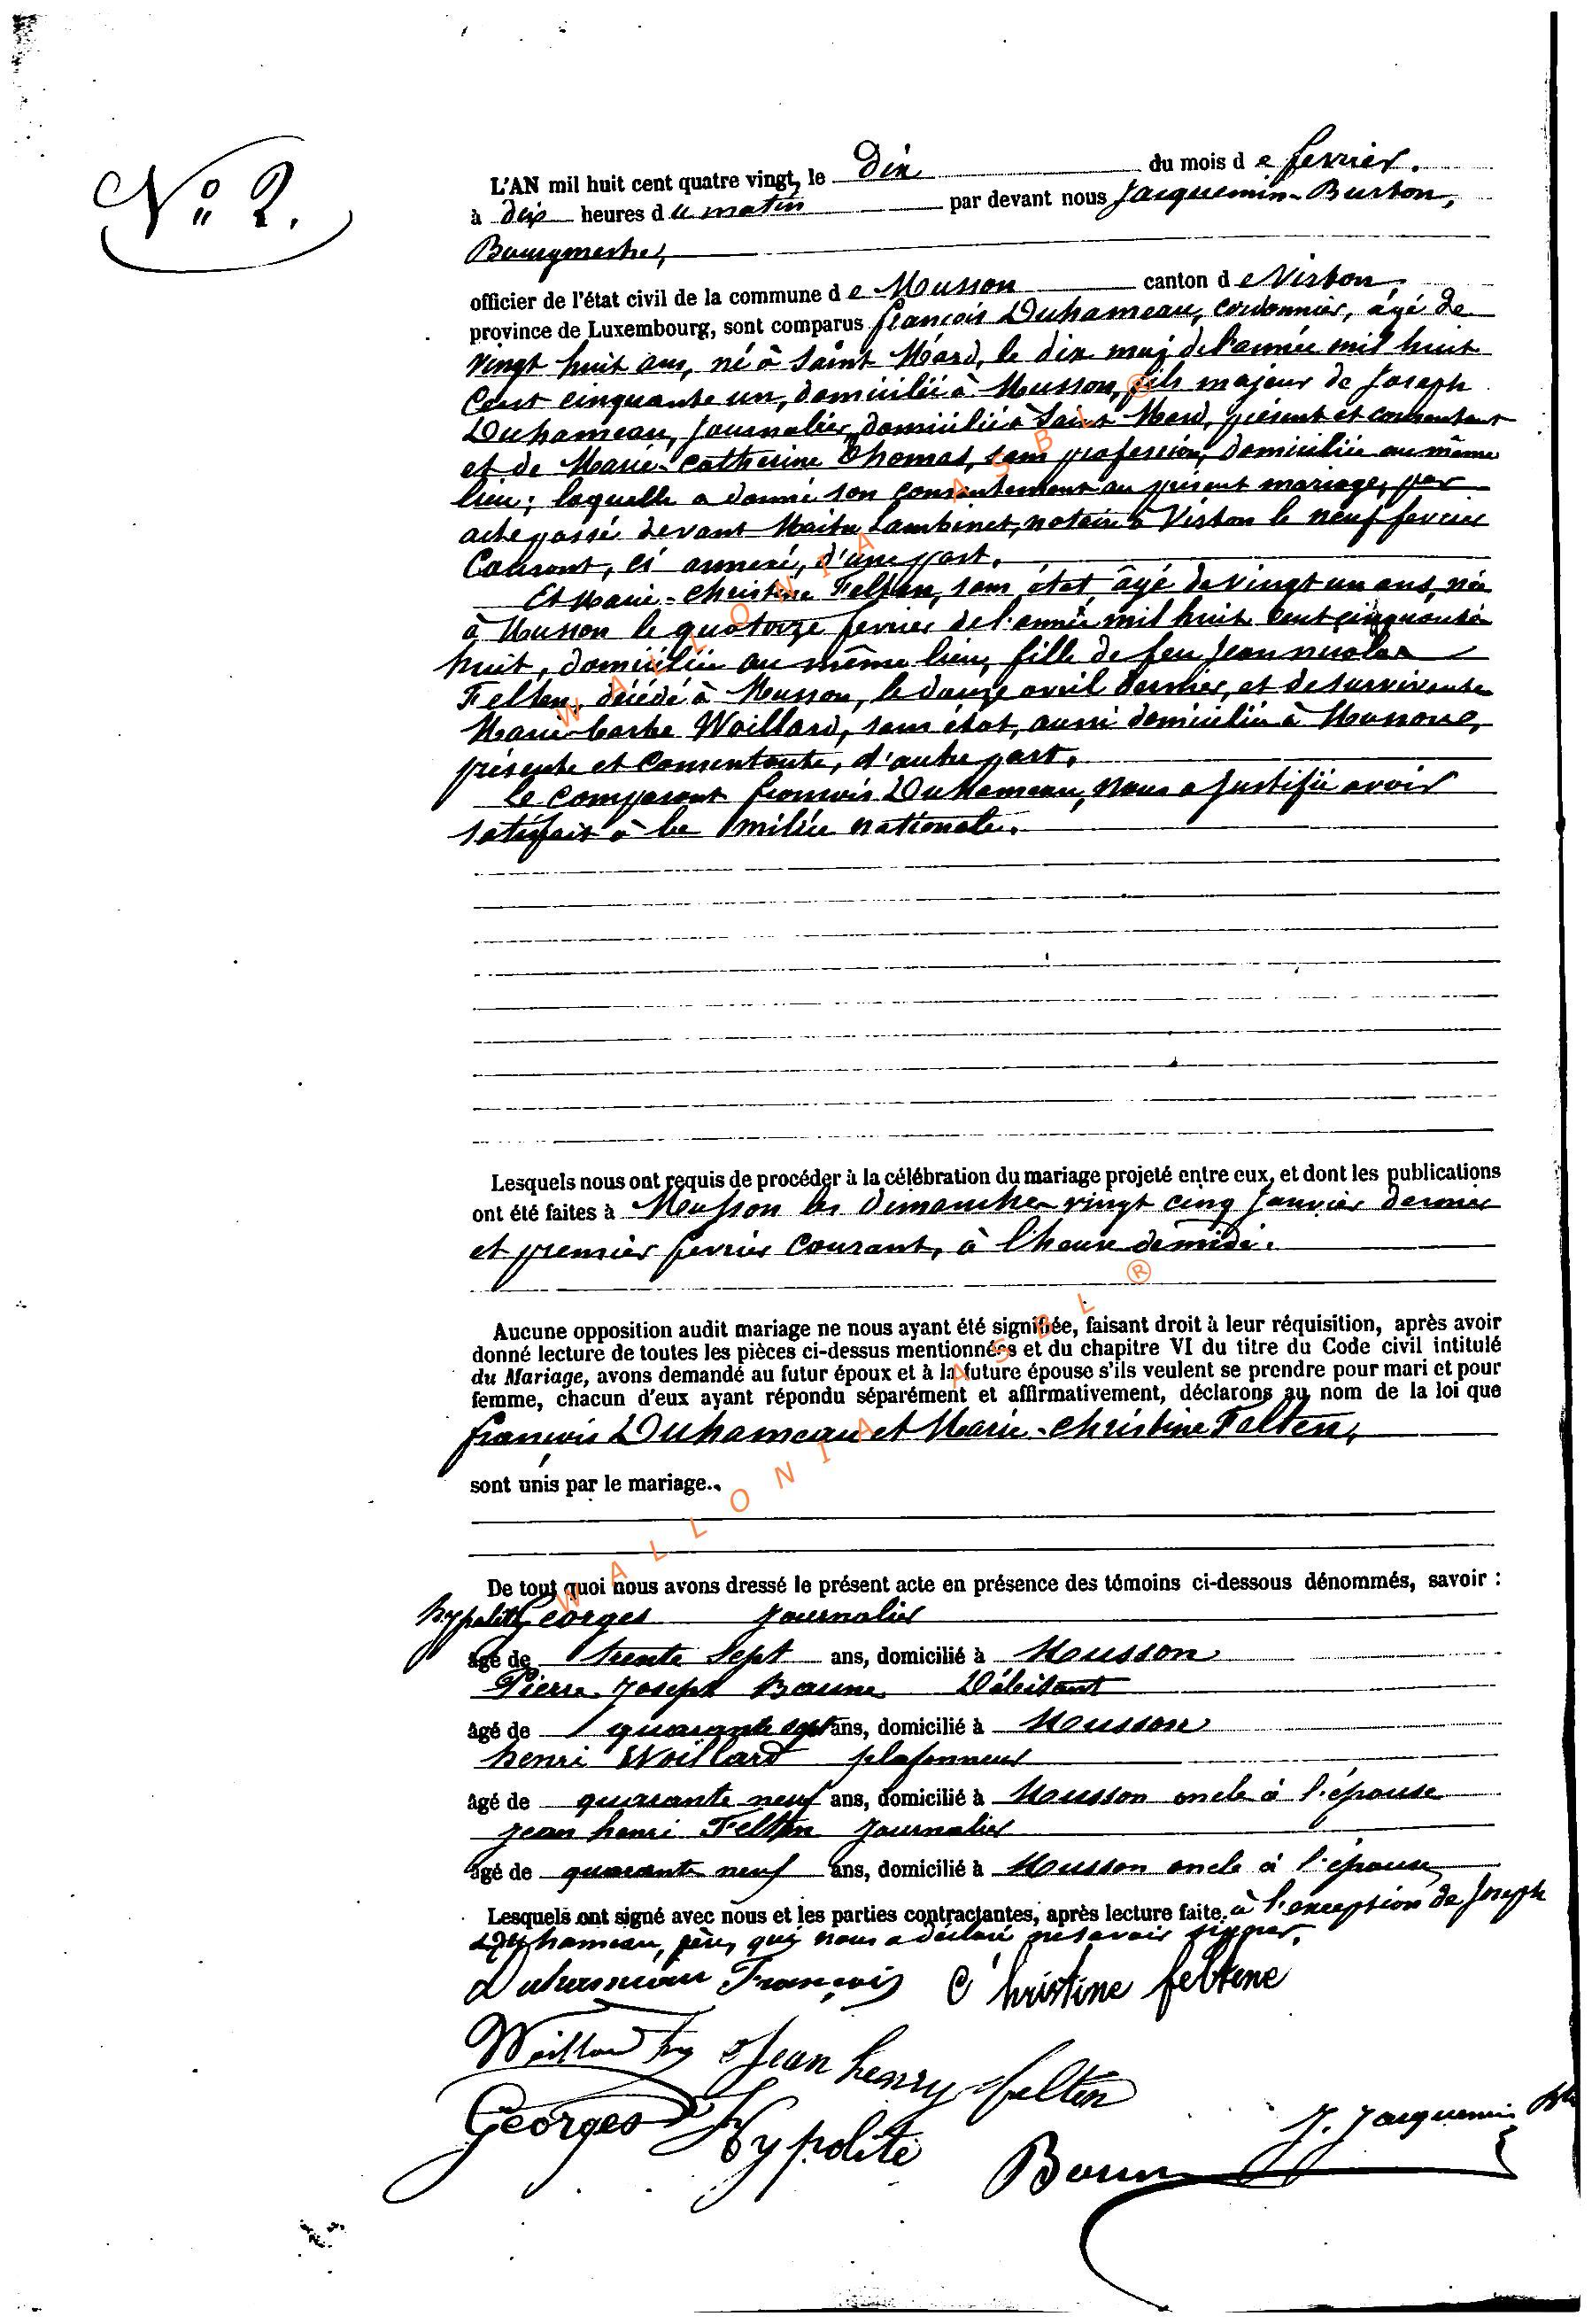 N° 2.
L'AN mil huit cent quatre vingt, le Dix du mois de fevrier.
à dix heures du matin par devant nous Jacquemin-Burton,
Bourgmestre,
officier de l'état civil de la commune de Musson canton de Virton,
province de Luxembourg, sont comparus françois Duhameau, cordonnier, âgé de
vingt huit ans, né à Saint Mard, le dix mai de l'année mil huit
Cent cinquante un, domicilié à Musson, fils majeur de Joseph
Duhameau, journalier, domicilié à Saint Mard, présent et consentant
et de Marie-catherine Thomas, sans profession, domiciliée au même
lieu; laquelle a donné son consentement au présent mariage, par
acte passé devant Maitre Lambinet, notaire à Virton le neuf fevrier
Courant, ci annexé, d'une part.
Et Marie-christine Felten, sans état, âgé de vingt un ans, née
à Musson le quatorze fevrier de l'année mil huit cent cinquante
huit, domiciliée au même lieu, fille de feu Jean nicolas
Felten, décédé à Musson, le douze avril dernier, et de survivante
Marie barbe Woillard, sans état, aussi domiciliée à Musson,
présente et consentante, d'autre part.
Le comparant françois Duhameau, nous a justifié avoir
satisfait à la milice nationale.
Lesquels nous ont requis de procéder à la célébration du mariage projeté entre eux, et dont les publications
ont été faites à Musson les dimanches vingt cinq Janvier dernier
et premier fevrier Courant, à l'heure de midi.
Aucune opposition audit mariage ne nous ayant été signifiée, faisant droit à leur réquisition, après avoir
donné lecture de toutes les pièces ci-dessus mentionnées et du chapitre VI du titre du Code civil intitulé
du Mariage, avons demandé au futur époux et à la future épouse s'ils veulent se prendre pour mari et pour
femme, chacun d'eux ayant répondu séparément et affirmativement, déclarons au nom de la loi que
françois Duhameau et Marie-christine Felten,
sont unis par le mariage.
De tout quoi nous avons dressé le présent acte en présence des témoins ci-dessous dénommés, savoir :
hypolite Georges journalier
âgé de trente sept ans, domicilié à Musson
Pierre Joseph Baume Débitant
âgé de quarante sept ans, domicilié à Musson
henri Woillard plafonneur
âgé de quarante neuf ans, domicilié à Musson oncle à l'épouse
jean henri Felten journalier
âgé de quarante neuf ans, domicilié à Musson oncle à l'épouse
Lesquels ont signé avec nous et les parties contractantes, après lecture faite. à l'exception de Joseph
Duhameau, père, qui nous a déclaré ne savoir signer.
Duhameau François Christine feltene
Woillard hy Jean henry felten
Georges Hypolite J. Jacquemin
WALLONIA ASBL ®
WALLONIA ASBL ®